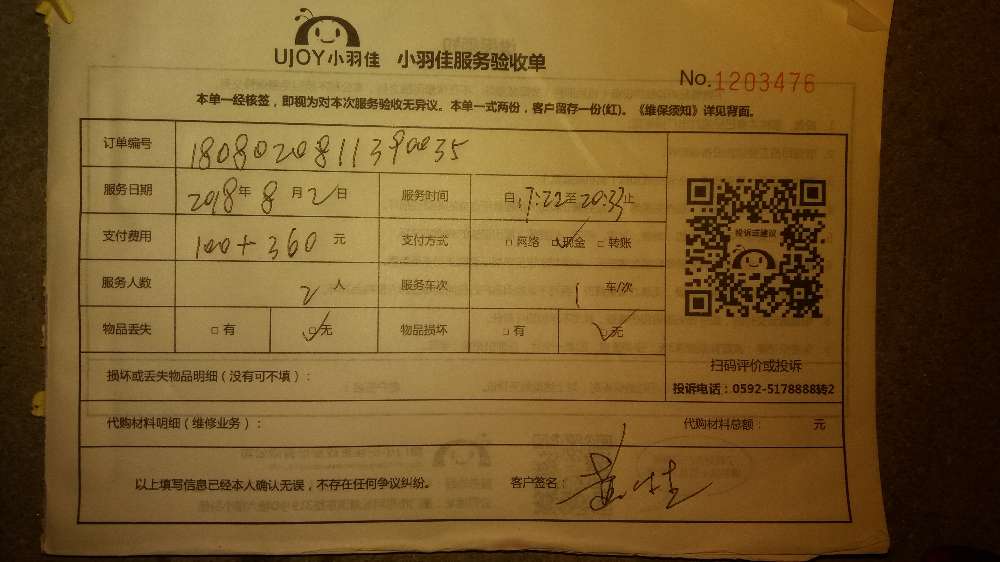 UJOY小羽佳 小羽佳服务验收单
No. 1203476
本单一经核签，即视为对本次服务验收无异议。本单一式两份，客户留存一份(红)。《维保须知》详见背面。
订单编号 1808020811390035
服务日期 2018年8月2日 服务时间 自17:22至20:33止
支付费用 100+360元 支付方式 □网络 □现金 □转账
服务人数 2人 服务车次 1车/次
物品丢失 □有 □无 物品损坏 □有 □无
投诉或建议
扫码评价或投诉
投诉电话：0592-5178888转2
损坏或丢失物品明细（没有可不填）：
代购材料明细（维修业务）： 代购材料总额： 元
以上填写信息已经本人确认无误，不存在任何争议纠纷。 客户签名：